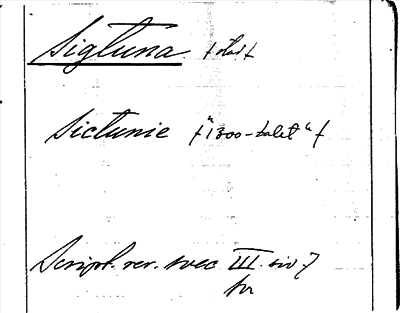 Sigtuna. † stad †
Sictunie †"1300-talet"†
Script. rer. svec III. sid 7